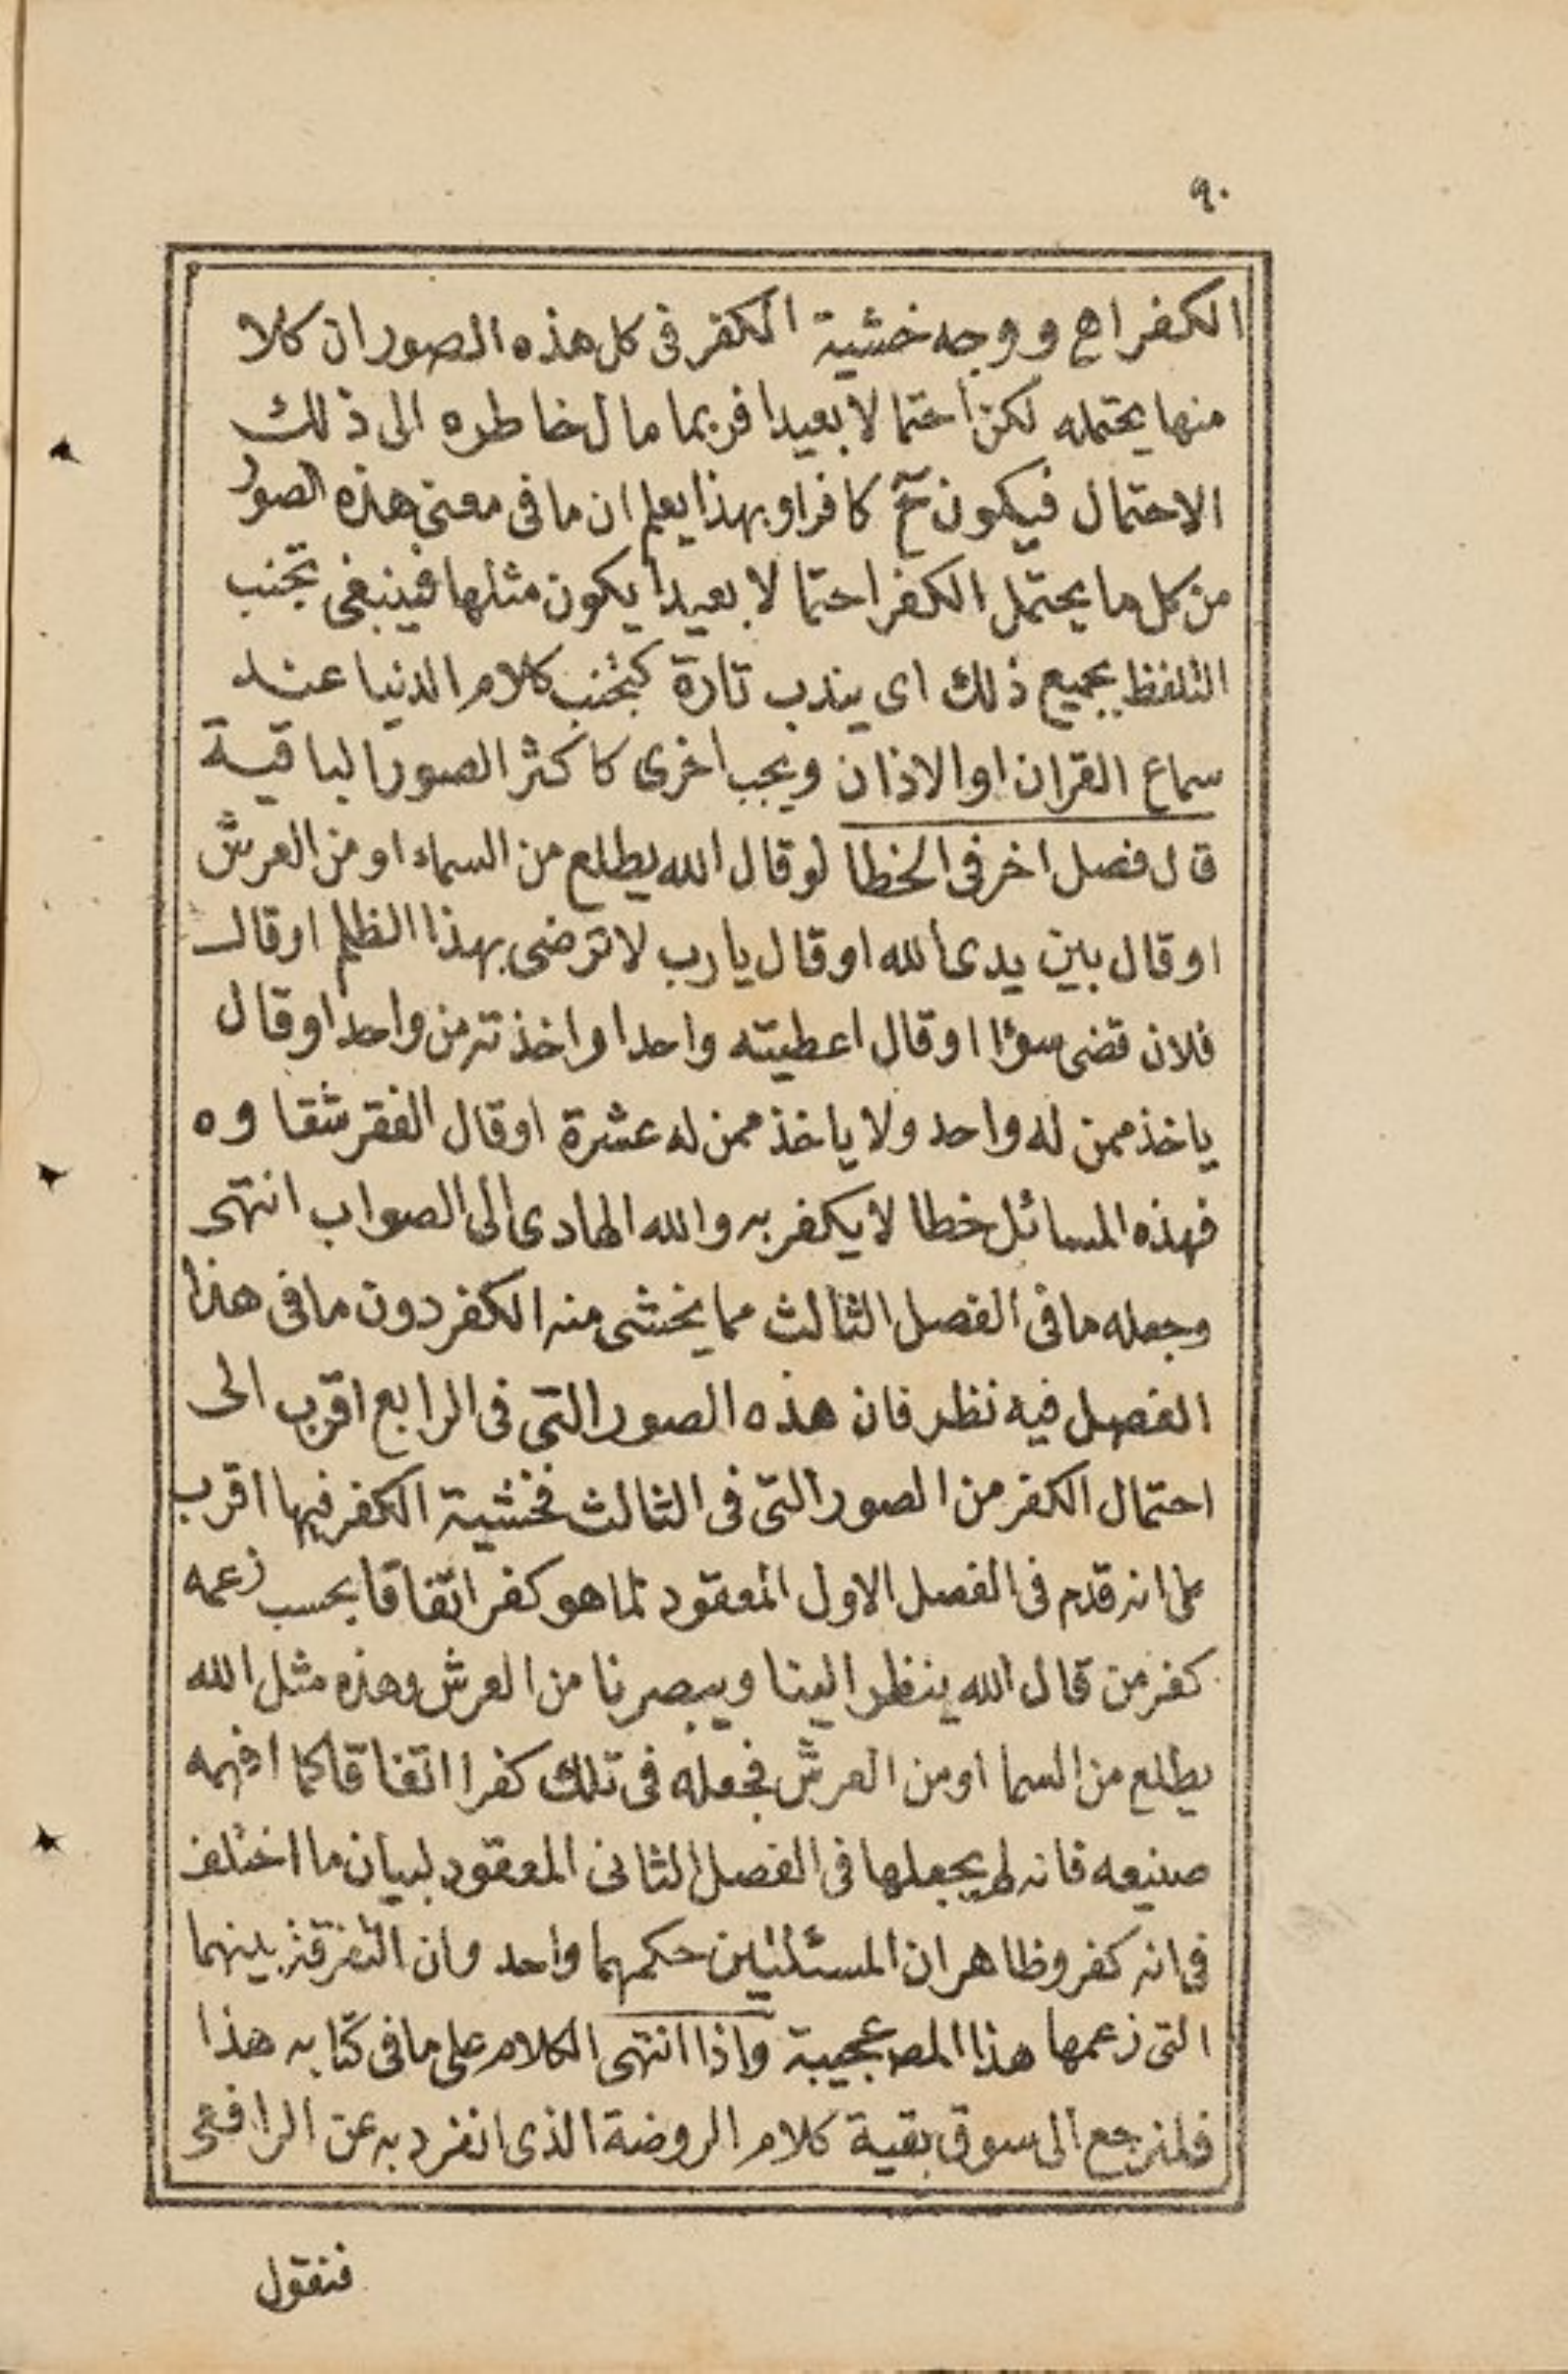 ٩٠
الكفر اه ووجه خشية الكفر فى كل هذه الصور ان كلا
منها يحتمله لكن احتمالا بعيدا فربما مال خاطره الى ذلك
الاحتمال فيكون ح كافرا وبهذا يعلم ان ما فى معنى هذه الصور
من كل ما يحتمل الكفر احتمالا بعيدا يكون مثلها فينبغى تجنب
التلفظ بجميع ذلك اى يندب تارة كتجنب كلام الدنيا عند
سماع القران او الاذان ويجب اخرى كاكثر الصور الباقية
قال فصل اخر فى الخطا لو قال الله يطلع من السماء او من العرش
او قال بين يدى الله او قال يا رب لا ترضى بهذا الظلم او قال
فلان قضى سؤا او قال اعطيته واحدا واخذته من واحد او قال
ياخذ ممن له واحد ولا ياخذ ممن له عشرة او قال الفقر شقاوه
فهذه المسائل خطا لا يكفر به والله الهادى الى الصواب انتهى
وجعله ما فى الفصل الثالث مما يخشى منه الكفر دون ما فى هذا
الفصل فيه نظر فان هذه الصور التى فى الرابع اقرب الى
احتمال الكفر من الصور التى فى الثالث فخشية الكفر فيها اقرب
على انه قدم فى الفصل الاول المعقود لما هو كفر اتفاقا بحسب زعمه
كفر من قال الله ينظر الينا ويبصرنا من العرش وهذه مثل الله
يطلع من السما او من العرش فجعله فى تلك كفرا اتفاقا كما افهمه
صنيعه فانه لم يجعلها فى الفصل الثانى المعقود لبيان ما اختلف
فى انه كفر وظاهر ان المسئلتين حكمهما واحد وان التفرقة بينهما
التى زعمها هذا المص عجيبة واذا انتهى الكلام على ما فى كتابه هذا
فلنرجع الى سوق بقية كلام الروضة الذى انفرد به عن الرافعى
فنقول